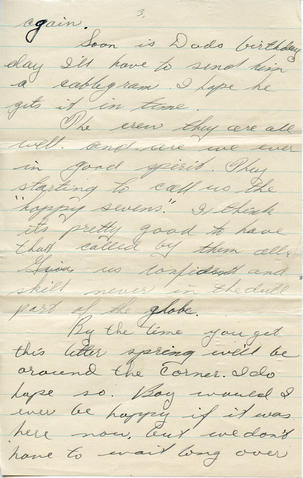 3.
again.
Soon is Dads birthday
day I'll have to send him
a cablegram. I hope he
gets it in time.
The crew they are all
well. and are we ever
in good spirit. They
starting to call us the
"happy sevens." I think
its pretty good to have
that called by them all.
Gives us confident and
skill never in the dull
part of the globe.
By the time you get
this letter spring will be
around the corner. I do
hope so. Boy would I
ever be happy if it was
here now, but we don't
have to wait long over